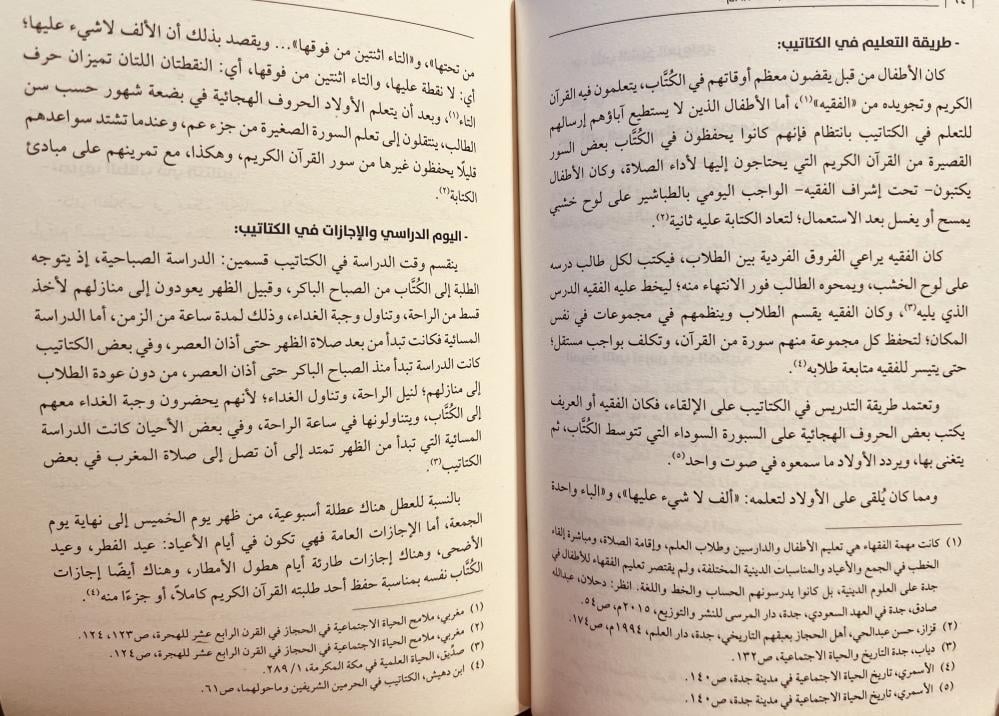 ١٤
- طريقة التعليم في الكتاتيب:
كان الأطفال من قبل يقضون معظم أوقاتهم في الكُتَّاب، يتعلمون فيه القرآن
الكريم وتجويده من «الفقيه»(١)، أما الأطفال الذين لا يستطيع آباؤهم إرسالهم
للتعلم في الكتاتيب بانتظام فإنهم كانوا يحفظون في الكُتَّاب بعض السور
القصيرة من القرآن الكريم التي يحتاجون إليها لأداء الصلاة، وكان الأطفال
يكتبون- تحت إشراف الفقيه- الواجب اليومي بالطباشير على لوح خشبي
يمسح أو يغسل بعد الاستعمال؛ لتعاد الكتابة عليه ثانية(٢).
كان الفقيه يراعي الفروق الفردية بين الطلاب، فيكتب لكل طالب درسه
على لوح الخشب، ويمحوه الطالب فور الانتهاء منه؛ ليخط عليه الفقيه الدرس
الذي يليه(٣)، وكان الفقيه يقسم الطلاب وينظمهم في مجموعات في نفس
المكان؛ لتحفظ كل مجموعة منهم سورة من القرآن، وتكلف بواجب مستقل؛
حتى يتيسر للفقيه متابعة طلابه(٤).
وتعتمد طريقة التدريس في الكتاتيب على الإلقاء، فكان الفقيه أو العريف
يكتب بعض الحروف الهجائية على السبورة السوداء التي تتوسط الكُتَّاب، ثم
يتغنى بها، ويردد الأولاد ما سمعوه في صوت واحد(٥).
ومما كان يُلقى على الأولاد لتعلمه: «ألف لا شيء عليها»، و«الباء واحدة
(١) كانت مهمة الفقهاء هي تعليم الأطفال والدارسين وطلاب العلم، وإقامة الصلاة، ومباشرة إلقاء
الخطب في الجمع والأعياد والمناسبات الدينية المختلفة، ولم يقتصر تعليم الفقهاء للأطفال في
جدة على العلوم الدينية، بل كانوا يدرسونهم الحساب والخط واللغة. انظر: دحلان، عبدالله
صادق، جدة في العهد السعودي، جدة، دار المرسى للنشر والتوزيع، ٢٠١٥م، ص٥٤.
(٢) قزاز، حسن عبدالحي، أهل الحجاز بعبقهم التاريخي، جدة، دار العلم، ١٩٩٤م، ص١٧٤.
(٣) دياب، جدة التاريخ والحياة الاجتماعية، ص١٣٢.
(٤) الأسمري، تاريخ الحياة الاجتماعية في مدينة جدة، ص١٤٠.
(٥) الأسمري، تاريخ الحياة الاجتماعية في مدينة جدة، ص١٤٠.
من تحتها»، و«التاء اثنتين من فوقها»... ويقصد بذلك أن الألف لاشيء عليها؛
أي: لا نقطة عليها، والتاء اثنتين من فوقها، أي: النقطتان اللتان تميزان حرف
التاء(١)، وبعد أن يتعلم الأولاد الحروف الهجائية في بضعة شهور حسب سن
الطالب، ينتقلون إلى تعلم السورة الصغيرة من جزء عم، وعندما تشتد سواعدهم
قليلًا يحفظون غيرها من سور القرآن الكريم، وهكذا، مع تمرينهم على مبادئ
الكتابة(٢).
- اليوم الدراسي والإجازات في الكتاتيب:
ينقسم وقت الدراسة في الكتاتيب قسمين: الدراسة الصباحية، إذ يتوجه
الطلبة إلى الكُتَّاب من الصباح الباكر، وقبيل الظهر يعودون إلى منازلهم لأخذ
قسط من الراحة، وتناول وجبة الغداء، وذلك لمدة ساعة من الزمن، أما الدراسة
المسائية فكانت تبدأ من بعد صلاة الظهر حتى أذان العصر، وفي بعض الكتاتيب
كانت الدراسة تبدأ منذ الصباح الباكر حتى أذان العصر، من دون عودة الطلاب
إلى منازلهم؛ لنيل الراحة، وتناول الغداء؛ لأنهم يحضرون وجبة الغداء معهم
إلى الكُتَّاب، ويتناولونها في ساعة الراحة، وفي بعض الأحيان كانت الدراسة
المسائية التي تبدأ من الظهر تمتد إلى أن تصل إلى صلاة المغرب في بعض
الكتاتيب(٣).
بالنسبة للعطل هناك عطلة أسبوعية، من ظهر يوم الخميس إلى نهاية يوم
الجمعة، أما الإجازات العامة فهي تكون في أيام الأعياد: عيد الفطر، وعيد
الأضحى، وهناك إجازات طارئة أيام هطول الأمطار، وهناك أيضًا إجازات
الكُتَّاب نفسه بمناسبة حفظ أحد طلبته القرآن الكريم كاملاً، أو جزءًا منه(٤).
(١) مغربي، ملامح الحياة الاجتماعية في الحجاز في القرن الرابع عشر للهجرة، ص١٢٣، ١٢٤.
(٢) مغربي، ملامح الحياة الاجتماعية في الحجاز في القرن الرابع عشر للهجرة، ص١٢٤.
(٣) صدّيق، الحياة العلمية في مكة المكرمة، ١/ ٢٨٩.
(٤) ابن دهيش، الكتاتيب في الحرمين الشريفين وماحولهما، ص٦١.